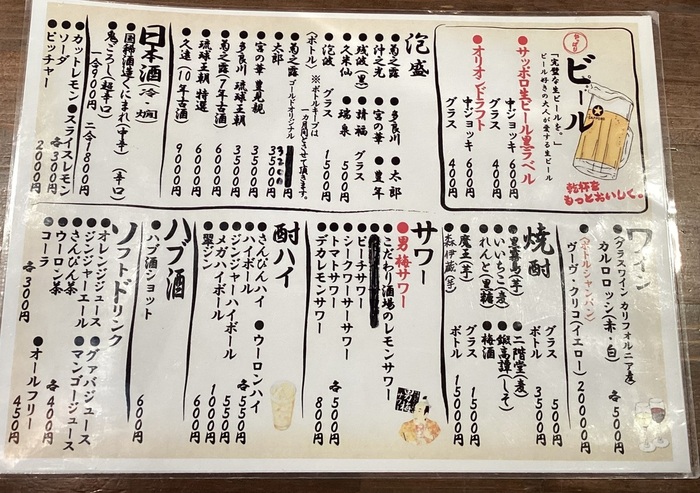 やっぱり
ビール
「完璧な生ビールを。」
ビール好きの大人が愛する生ビール
●サッポロ生ビール黒ラベル
中ジョッキ 600円
グラス 400円
●オリオンドラフト
中ジョッキ 600円
グラス 400円
乾杯を
もっとおいしく。
泡盛
●菊之露 ●多良川 ●太郎
●沖之光 ●宮の華 ●豊年
●残波(黒) ●請福 グラス
●久米仙 ●瑞泉 500円
●泡波 グラス 1500円
(ボトル) ※ボトルキープは
一カ月間とさせて頂きます。
●菊之露 ゴールドオリジナル
●太郎 3500円
●宮の華 豊見親 3500円
●多良川 琉球王朝 3500円
●菊之露(7年古酒) 6000円
●琉球王朝 特選 6000円
●久遠(10年古酒) 9000円
日本酒(冷・燗)
●国稀酒造くにまれ(中辛) (辛口)
●鬼ころし(超辛口)
一合900円 二合1800円
●カットレモン●スライスレモン
各300円
●ソーダ
●ピッチャー 2000円
ワイン
●(グラスワイン カリフォルニア産)
カルロロッシ(赤・白) 各500円
●(ボトルシャンパン)
ヴーヴ・クリコ(イエロー) 20000円
焼酎
グラス 500円
ボトル 3500円
●黒霧島(芋) ●二階堂(麦)
●いいちこ(麦) ●鍛高譚(しそ)
●れんと(黒糖) ●梅酒
●魔王(芋) グラス 1500円
●森伊蔵(芋) ボトル 15000円
サワー
●男梅サワー
●こだわり酒場のレモンサワー
●ピーチサワー
●シークワーサーサワー
●トマトサワー 各500円
●デカレモンサワー 800円
酎ハイ
●さんぴんハイ ●ウーロンハイ
各500円
●ハイボール 550円
●ジンジャーハイボール 550円
●メガハイボール 1000円
●翠ジン 600円
ハブ酒
●ハブ酒ショット 600円
ソフトドリンク
●オレンジジュース ●グァバジュース
●ジンジャーエール ●マンゴージュース
●さんぴん茶 各400円
●ウーロン茶
●コーラ 各300円
●オールフリー 450円